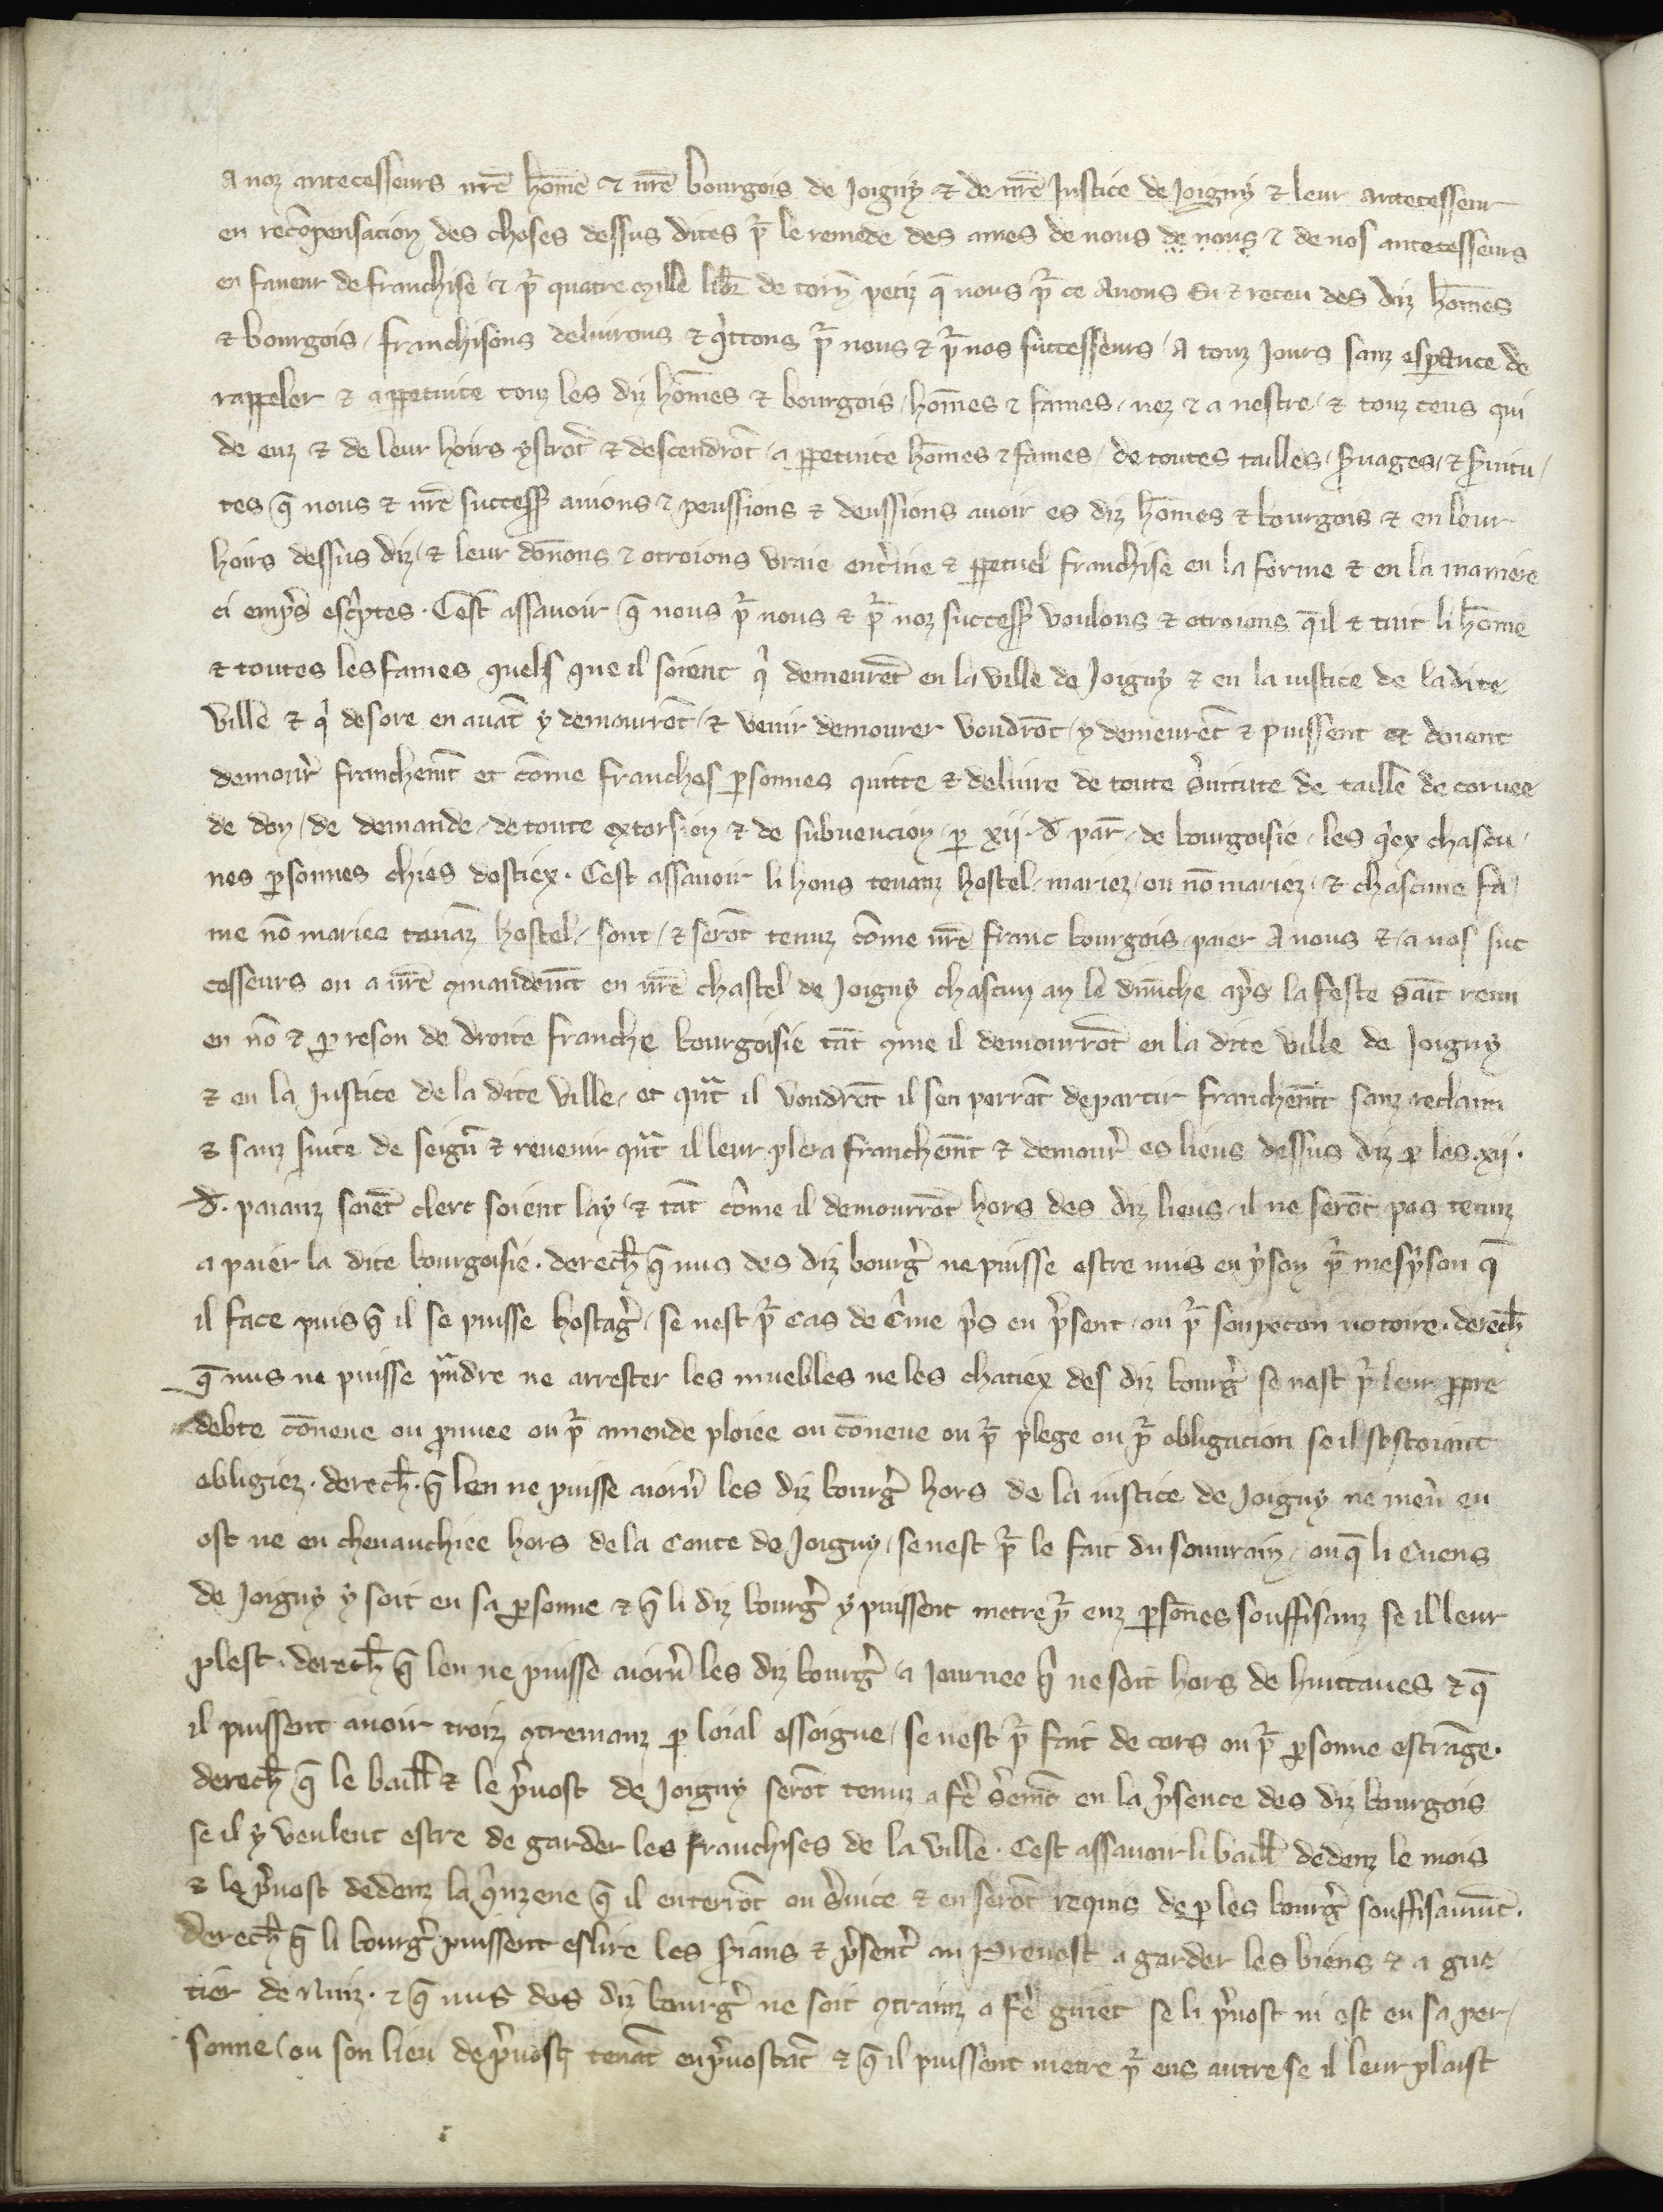 A noz antecesseurs nr̃e hom̃e ⁊ nr̃e bourgois de Joigny ⁊ de nr̃e Justice de Joigny ⁊ leur antecesseur
en recõpensacion des choses dessus dites pr̃ le remede des ames de nous de nous ⁊ de nos antecesseurs
en faueur de franchise ⁊ pr̃ quatre mille libr̃ de torñ petiz q̃ nous pr̃ ce Auons Eu ⁊ receu des diz hom̃es
⁊ bourgois / franchisons deliurons ⁊ qͥttons pr̃ nous ⁊ pr̃ nos successeurs / A touz Jours sanz espance de
rappeler ⁊ a ppetuite touz les diz hom̃es ⁊ bourgois / hom̃es ⁊ fames / nez ⁊ a nestre / ⁊ touz ceus qui
de euz ⁊ de leur hoirs ystrõt ⁊ descendrõt / a ppetuite hom̃es ⁊ fames / de toutes tailles / s̃uages / ⁊ s̃uitu /
tes q̃ nous ⁊ nr̃e success̃ auions ⁊ peussions ⁊ deussions auoir es diz hom̃es ⁊ bourgois ⁊ en leur
hoirs dessus diz / ⁊ leur dõnons ⁊ otroions vraie ent̾ine ⁊ ppetuel franchise en la forme ⁊ en la maniere
ci emp̾s escͥptes . Cest assauoir q̃ nous pr̃ nous ⁊ pr̃ noz success̃ voulons ⁊ otroions q̃ il ⁊ tuit li hom̃e
⁊ toutes les fames quels que il soient qͥ demeurẽt en la ville de Joigny ⁊ en la iustice de la dite
ville ⁊ qͥ desore en auãt y demourrõt / ⁊ venir demourer voudrõt / y demeurẽt ⁊ puissent et doient
demour̾ franchemẽt et cõme franches psonnes quitte ⁊ deliure de toute s̾uitute de taille de coruee
de don / de demande / de toute extorsion ⁊ de subuencion / p xij . d̶ par̃ . de bourgoisie / les qͥex chascu /
nes psonnes chies dostiex . Cest assauoir li hons tenanz hostel / mariez / ou nõ mariez / ⁊ chascune fa /
me nõ mariee tenãz hostel / sont / ⁊ serõt tenuz cõme nr̃e franc bourgois / paier A nous ⁊ / a nos suc
cesseurs ou a nr̃e ꝯmandemẽt en nr̃e chastel de Joigny chascun an le dimẽche ap̾s la feste saĩt remi
en nõ ⁊ p reson de droite franche bourgoisie tãt ꝯme il demourrõt en la dite ville de Joigny
⁊ en la Justice de la dite ville / et qᷓt il voudrõt il sen porrõt departir franchemẽt sanz reclaim
⁊ sanz suite de seign̾ ⁊ reuenir qᷓt il leur plera franchemẽt ⁊ demour̾ es lieus dessus diz p les xij .
d̶ . paianz soiẽt clerc soient lay / ⁊ tãt cõme il demourrõt hors des diz lieus / il ne serõt pas tenuz
a paier la dite bourgoisie . derech̃ q̃ nus des diz bourg̾ ne puisse estre mis en pͥson pr̃ mespͥson q̃
il face puis q̃ il se puisse hostag̾ / se nest pr̃ cas de cͥme pͥs en p̾sent / ou pr̃ soupecon notoire . derech̃
q̃ nus ne puisse pᷓndre ne arrester les muebles ne les chatiex des diz bourg̾ se nest pr̃ leur ppre
debte cõneue ou prouuee ou pr̃ amende ploiee ou cõneue ou pr̃ plege ou pr̃ obligacion se il sestoient
obligiez . derech̃ . q̃ len ne puisse aiorn̾ les diz bourg̾ hors de la iustice de Joigny ne men̾ en
ost ne en cheuauchiee hors de la Conte de Joigny / se nest pr̃ le fait du souurain / ou q̃ li Cuens
de Joigny y soit en sa psonne ⁊ q̃ li diz bourg̾ y puissent metre pr̃ euz psõnes souffisanz se il leur
plest . derech̃ q̃ len ne puisse aiorn̾ les diz bourg̾ a Journee qͥ ne soit hors de huittaues ⁊ q̃
il puissent auoir troiz ꝯtremanz p loial essoigne / se nest pr̃ fait de cors ou pr̃ psonne estrãge .
derech̃ q̃ le baill̃ ⁊ le p̾uost de Joigny serõt tenuz a fẽ s̾emẽt en la p̾sence des diz bourgois
se il y veulent estre de garder les franchises de la ville . Cest assauoir li baill̃ dedenz le mois
⁊ le p̾uost dedenz la qͥnzene q̃ il enterrõt ou s̾uice ⁊ en serõt requis de p les bourg̾ souffisãmẽt .
derech̃ q̃ li bourg̾ puissent eslire les s̾ians ⁊ p̾sent̾ au Preuost a garder les biens ⁊ a gue
tier de Nuiz . ⁊ q̃ nus des diz bourg̾ ne soit ꝯtrainz a fẽ guiet se li p̾uost ni est en sa per /
sonne / ou son lieu de p̾uost tenãt en p̾uostãt ⁊ q̃ il puissent metre pr̃ eus autre se il leur plaist